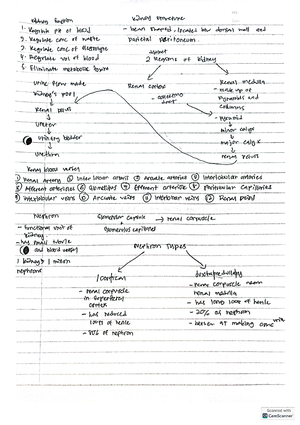 Kidney function
1. Regulate PH of blood
2. Regulate conc of waste
3. Regulate conc of electrolyte
4. Regulate vol of blood
5. Eliminate metabolic waste
Kidney structure
- bean shaped, located b/w dorsal wall and
parietal peritoneum.
2 Regions of kidney
Renal cortex
Renal medulla
- made up of
Pyramids and
columns
Pyramid
minor calyx
major calyx
renal pelvis
Urine flow made
Kidney's
Renal pelvis
Ureter
urinary bladder
Urethra
Renal blood vessels
① Renal Artery ② Interlobar arteries ③ Arcuate arteries ④ Interlobular arteries
⑤ Afferent arterioles ⑥ Glomerulus ⑦ Efferent arterioles ⑧ Peritubular Capillaries
⑨ Interlobular veins ⑩ Arcuate veins ⑪ Interlobar veins ⑫ Renal
Nephron
- functional unit of
kidney.
- has renal tubule
and blood vessels
1 kidney = 1 million
nephrons
Glomerular capsule → renal corpuscle
Glomerulus
Nephron Types
Cortical
- renal corpuscle
in superficial
cortex
- has reduced
loops of henle
- 80% of nephron
Juxtamedullary
- renal corpuscle near
renal medulla
- has long loop of henle
- 20% of nephron
- better at making conc urine
Scanned with
CamScanner